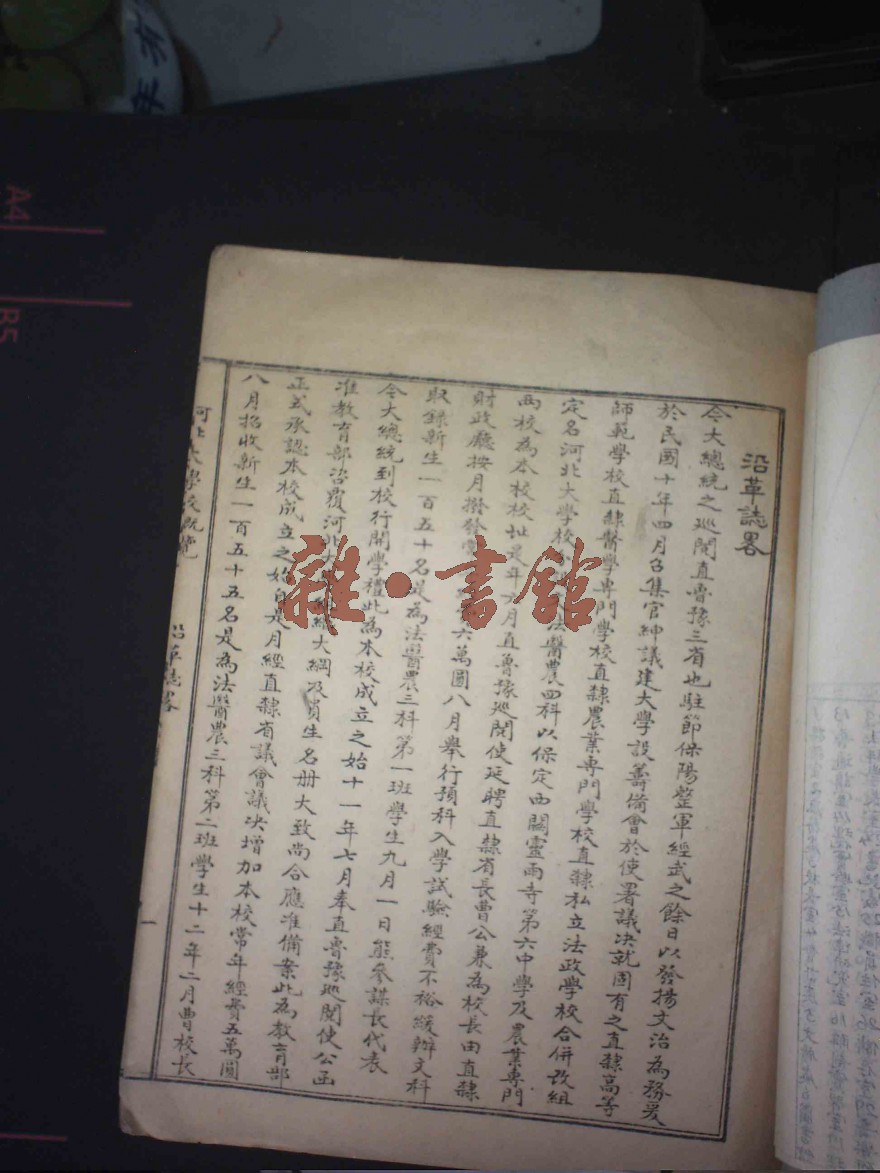 沿革誌畧
今大總統之巡閱直魯豫三省也駐節保陽整軍經武之餘日以發揚文治為務爰
於民國十年四月召集官紳議建大學設籌備會於使署議決就固有之直隸高等
師範學校直隸醫學專門學校直隸農業專門學校直隸私立法政學校合併改組
定名河北大學校 法醫農四科以保定西關靈雨寺第六中學及農業專門
兩校為本校校址是年 月直魯豫巡閱使延聘直隸省長曹公兼為校長由直隸
財政廳按月撥發 六萬圓八月舉行預科入學試驗經費不裕緩辦文科
取錄新生一百五十名是為法醫農三科第一班學生九月一日熊參謀長代表
今大總統到校行開學禮此為本校成立之始十一年七月奉直魯豫巡閱使公函
准教育部咨覆河北大 大綱及 生名册大致尚合應准備案此為教育部
正式承認本校成立之始自是月經直隸省議會議決增加本校常年經費五萬圓
八月招收新生一百五十五名是為法醫農三科第二班學生十二年二月曹校長
河北大學校概覽
沿革誌畧
一
雜·書館
A4
B5